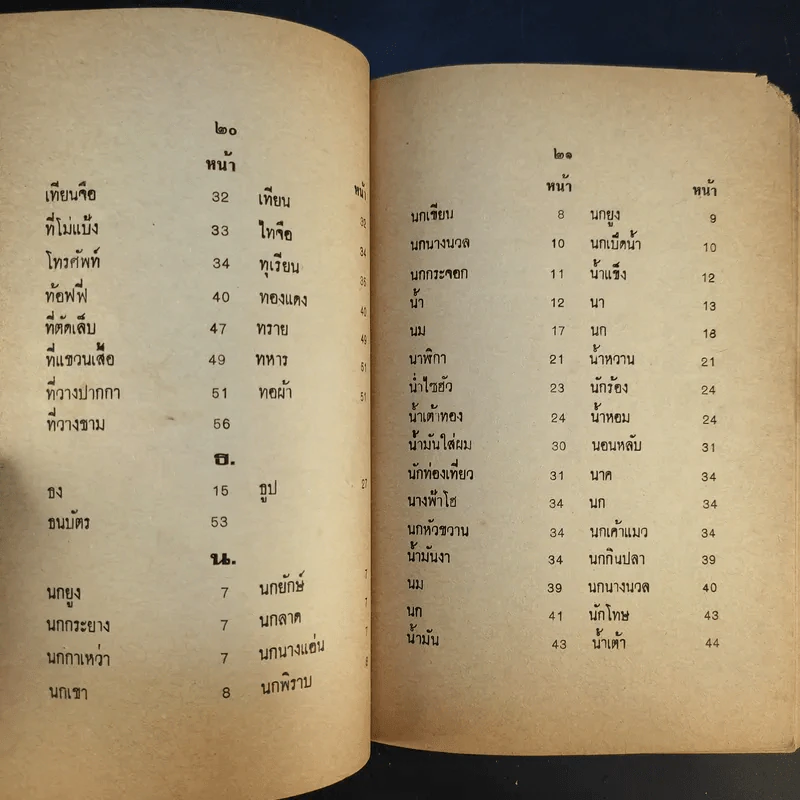 ๒๐
หน้า หน้า
เทียนจือ 32 เทียน 32
ที่โม่แป้ง 33 ไทจือ 34
โทรศัพท์ 34 ทุเรียน 36
ท้อฟฟี่ 40 ทองแดง 40
ที่ตัดเล็บ 47 ทราย 49
ที่แขวนเสื้อ 49 ทหาร 51
ที่วางปากกา 51 ทอผ้า 51
ที่วางชาม 56
ธ.
ธง 15 ธูป 27
ธนบัตร 53
น.
นกยูง 7 นกยักษ์ 7
นกกระยาง 7 นกลาด 7
นกกาเหว่า 7 นกนางแอ่น 7
นกเขา 8 นกพิราบ
๒๑
หน้า หน้า
นกเขียน 8 นกยูง 9
นกนางนวล 10 นกเป็ดน้ำ 10
นกกระจอก 11 น้ำแข็ง 12
น้ำ 12 นา 13
นม 17 นก 18
นาฬิกา 21 น้ำหวาน 21
น่ำไซฮัว 23 นักร้อง 24
น้ำเต้าทอง 24 น้ำหอม 24
น้ำมันใส่ผม 30 นอนหลับ 31
นักท่องเที่ยว 31 นาค 34
นางฟ้าโฮ 34 นก 34
นกหัวขวาน 34 นกเค้าแมว 34
น้ำมันงา 34 นกกินปลา 39
นม 39 นกนางนวล 40
นก 41 นักโทษ 43
น้ำมัน 43 น้ำเต้า 44